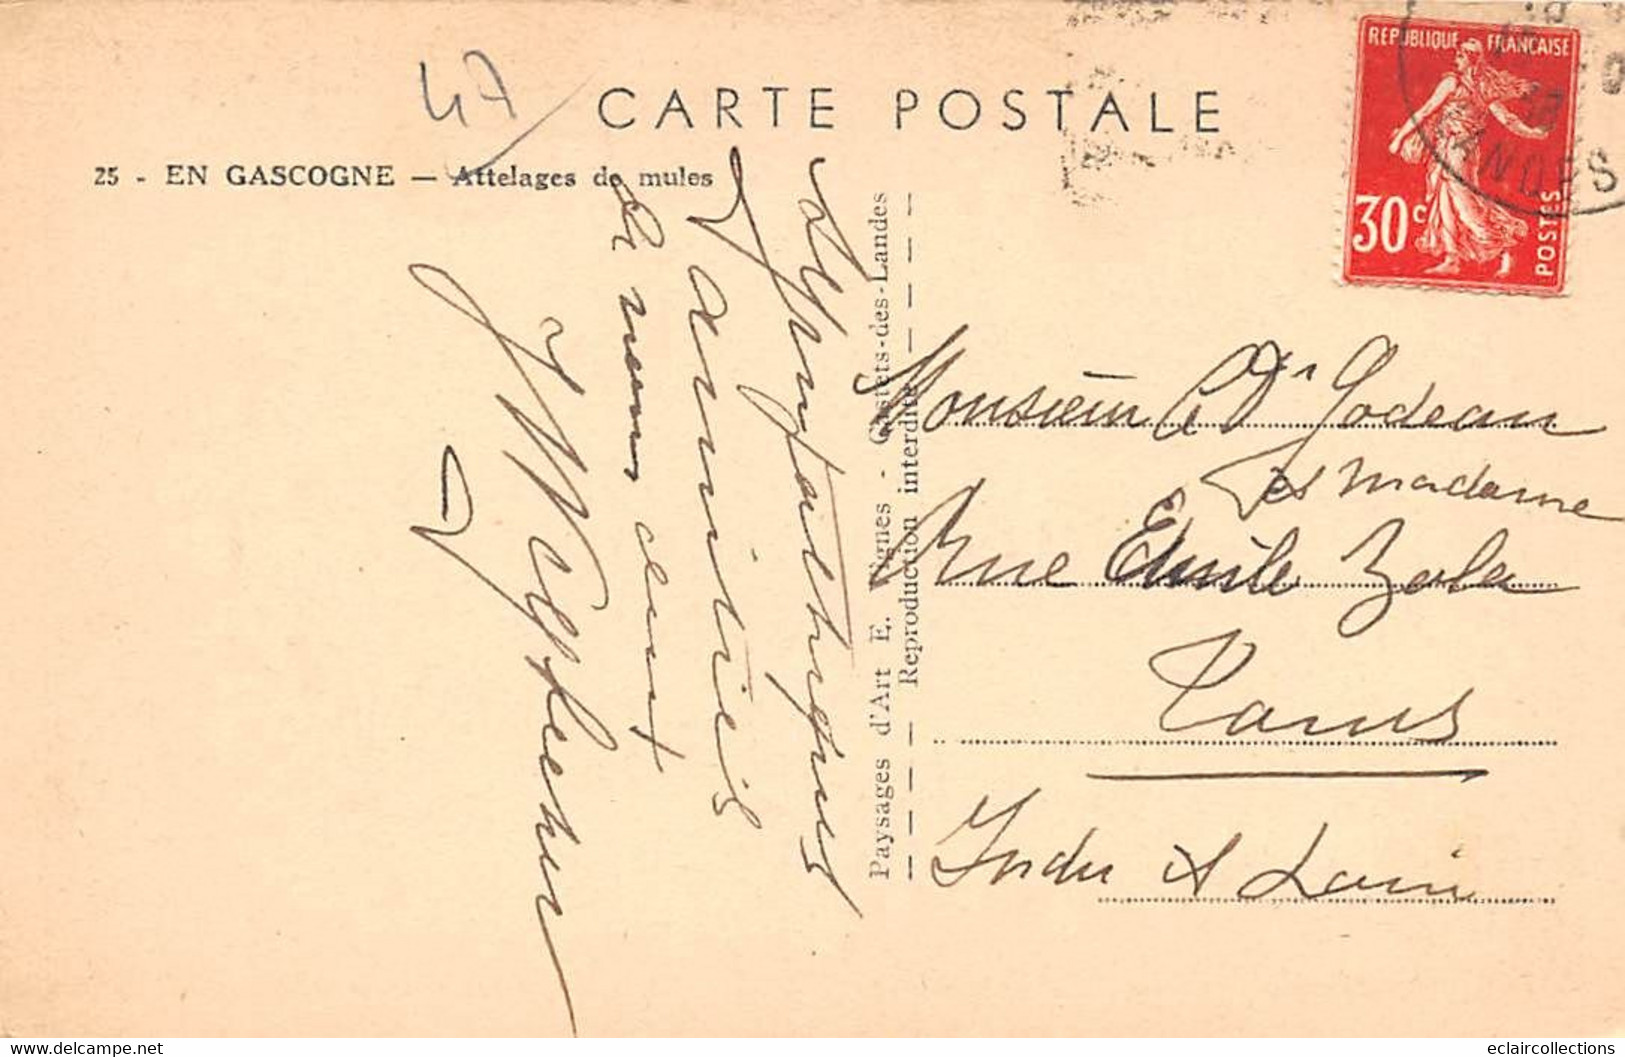 47
CARTE POSTALE
25 - EN GASCOGNE — Attelages de mules
REPUBLIQUE FRANÇAISE
30c
POSTES
Sympathiques
amitiés
de nous deux
Paysages d'Art E. Vignes - Castets-des-Landes
Reproduction interdite
Monsieur le Dr Godeau
et Madame
Rue Emile Zola
Tours
Indre et Loire
delcampe.net
eclaircollections